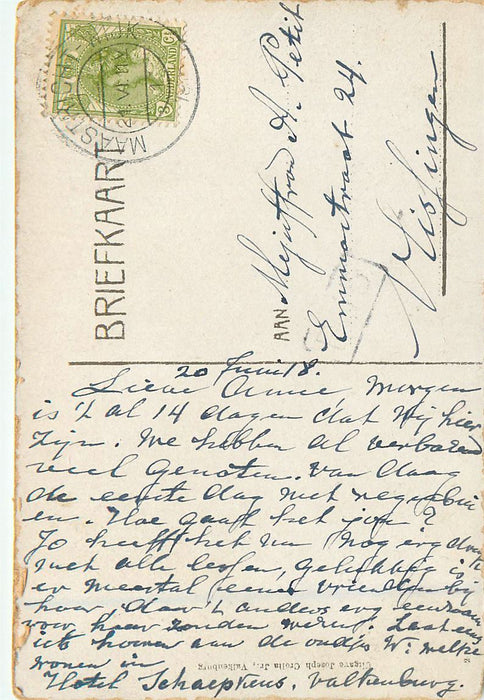 BRIEFKAART
MAASTRICHT
NEDERLAND
AAN
Mejuffrouw A. Petit
Emmastraat 24.
Vlissingen
20 Juni 18.
Lieve Annie, Morgen
is 't al 14 dagen dat wij hier
zijn. We hebben al verbazend
veel genoten. Van daag
de eerste dag met regenbui
en. Hoe gaat het jou?
Jo heeft het nu nog erg druk
met alle lessen, gelukkig is
er meestal eene vriendin bij
haar, daar 't anders erg eenzaam
voor haar zouden wezen. Laat eens
iets hooren aan de oudjes. We
wonen in
Hotel Schaepkens, Valkenburg.
Uitgave Joseph Crolla Jr., Valkenburg